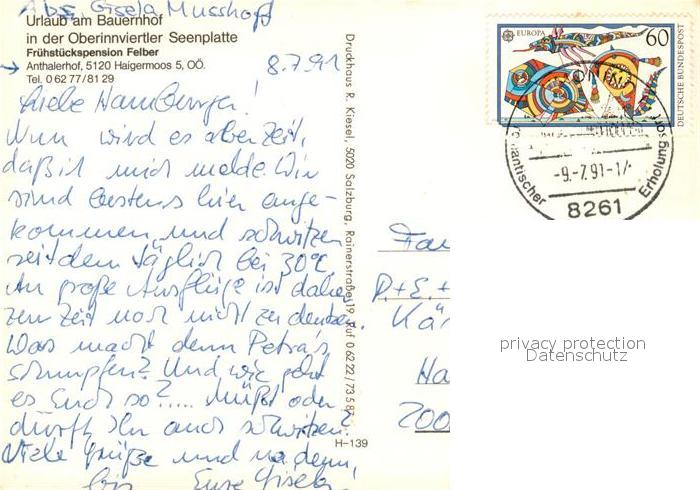 Abs. Gisela Musshoff
Urlaub am Bauernhof
in der Oberinnviertler Seenplatte
Frühstückspension Felber
Anthalerhof, 5120 Haigermoos 5, OÖ.
Tel. 0 62 77/81 29
8.7.91
Liebe Hamburger!
Nun wird es aber Zeit,
daß ich mich melde. Wir
sind bestens hier ange-
kommen und schwitzen
seitdem täglich bei 30°C.
An große Ausflüge ist daher
zur Zeit noch nicht zu denken.
Was macht denn Petra's
schnupfen? Und wie geht
es Euch so?.... Müßt oder
dürft Ihr auch schwitzen?
Viele Grüße und na denn,
bis Eure Gisela
Druckhaus R. Kiesel, 5020 Salzburg, Rainerstraße 19, Ruf 0 62 22 / 73 5 87
H-139
EUROPA
60
DEUTSCHE BUNDESPOST
Erholungsort
-9.-7.91-17
8261
Fam
P.+E.+
Kä
Ha
200
privacy protection
Datenschutz